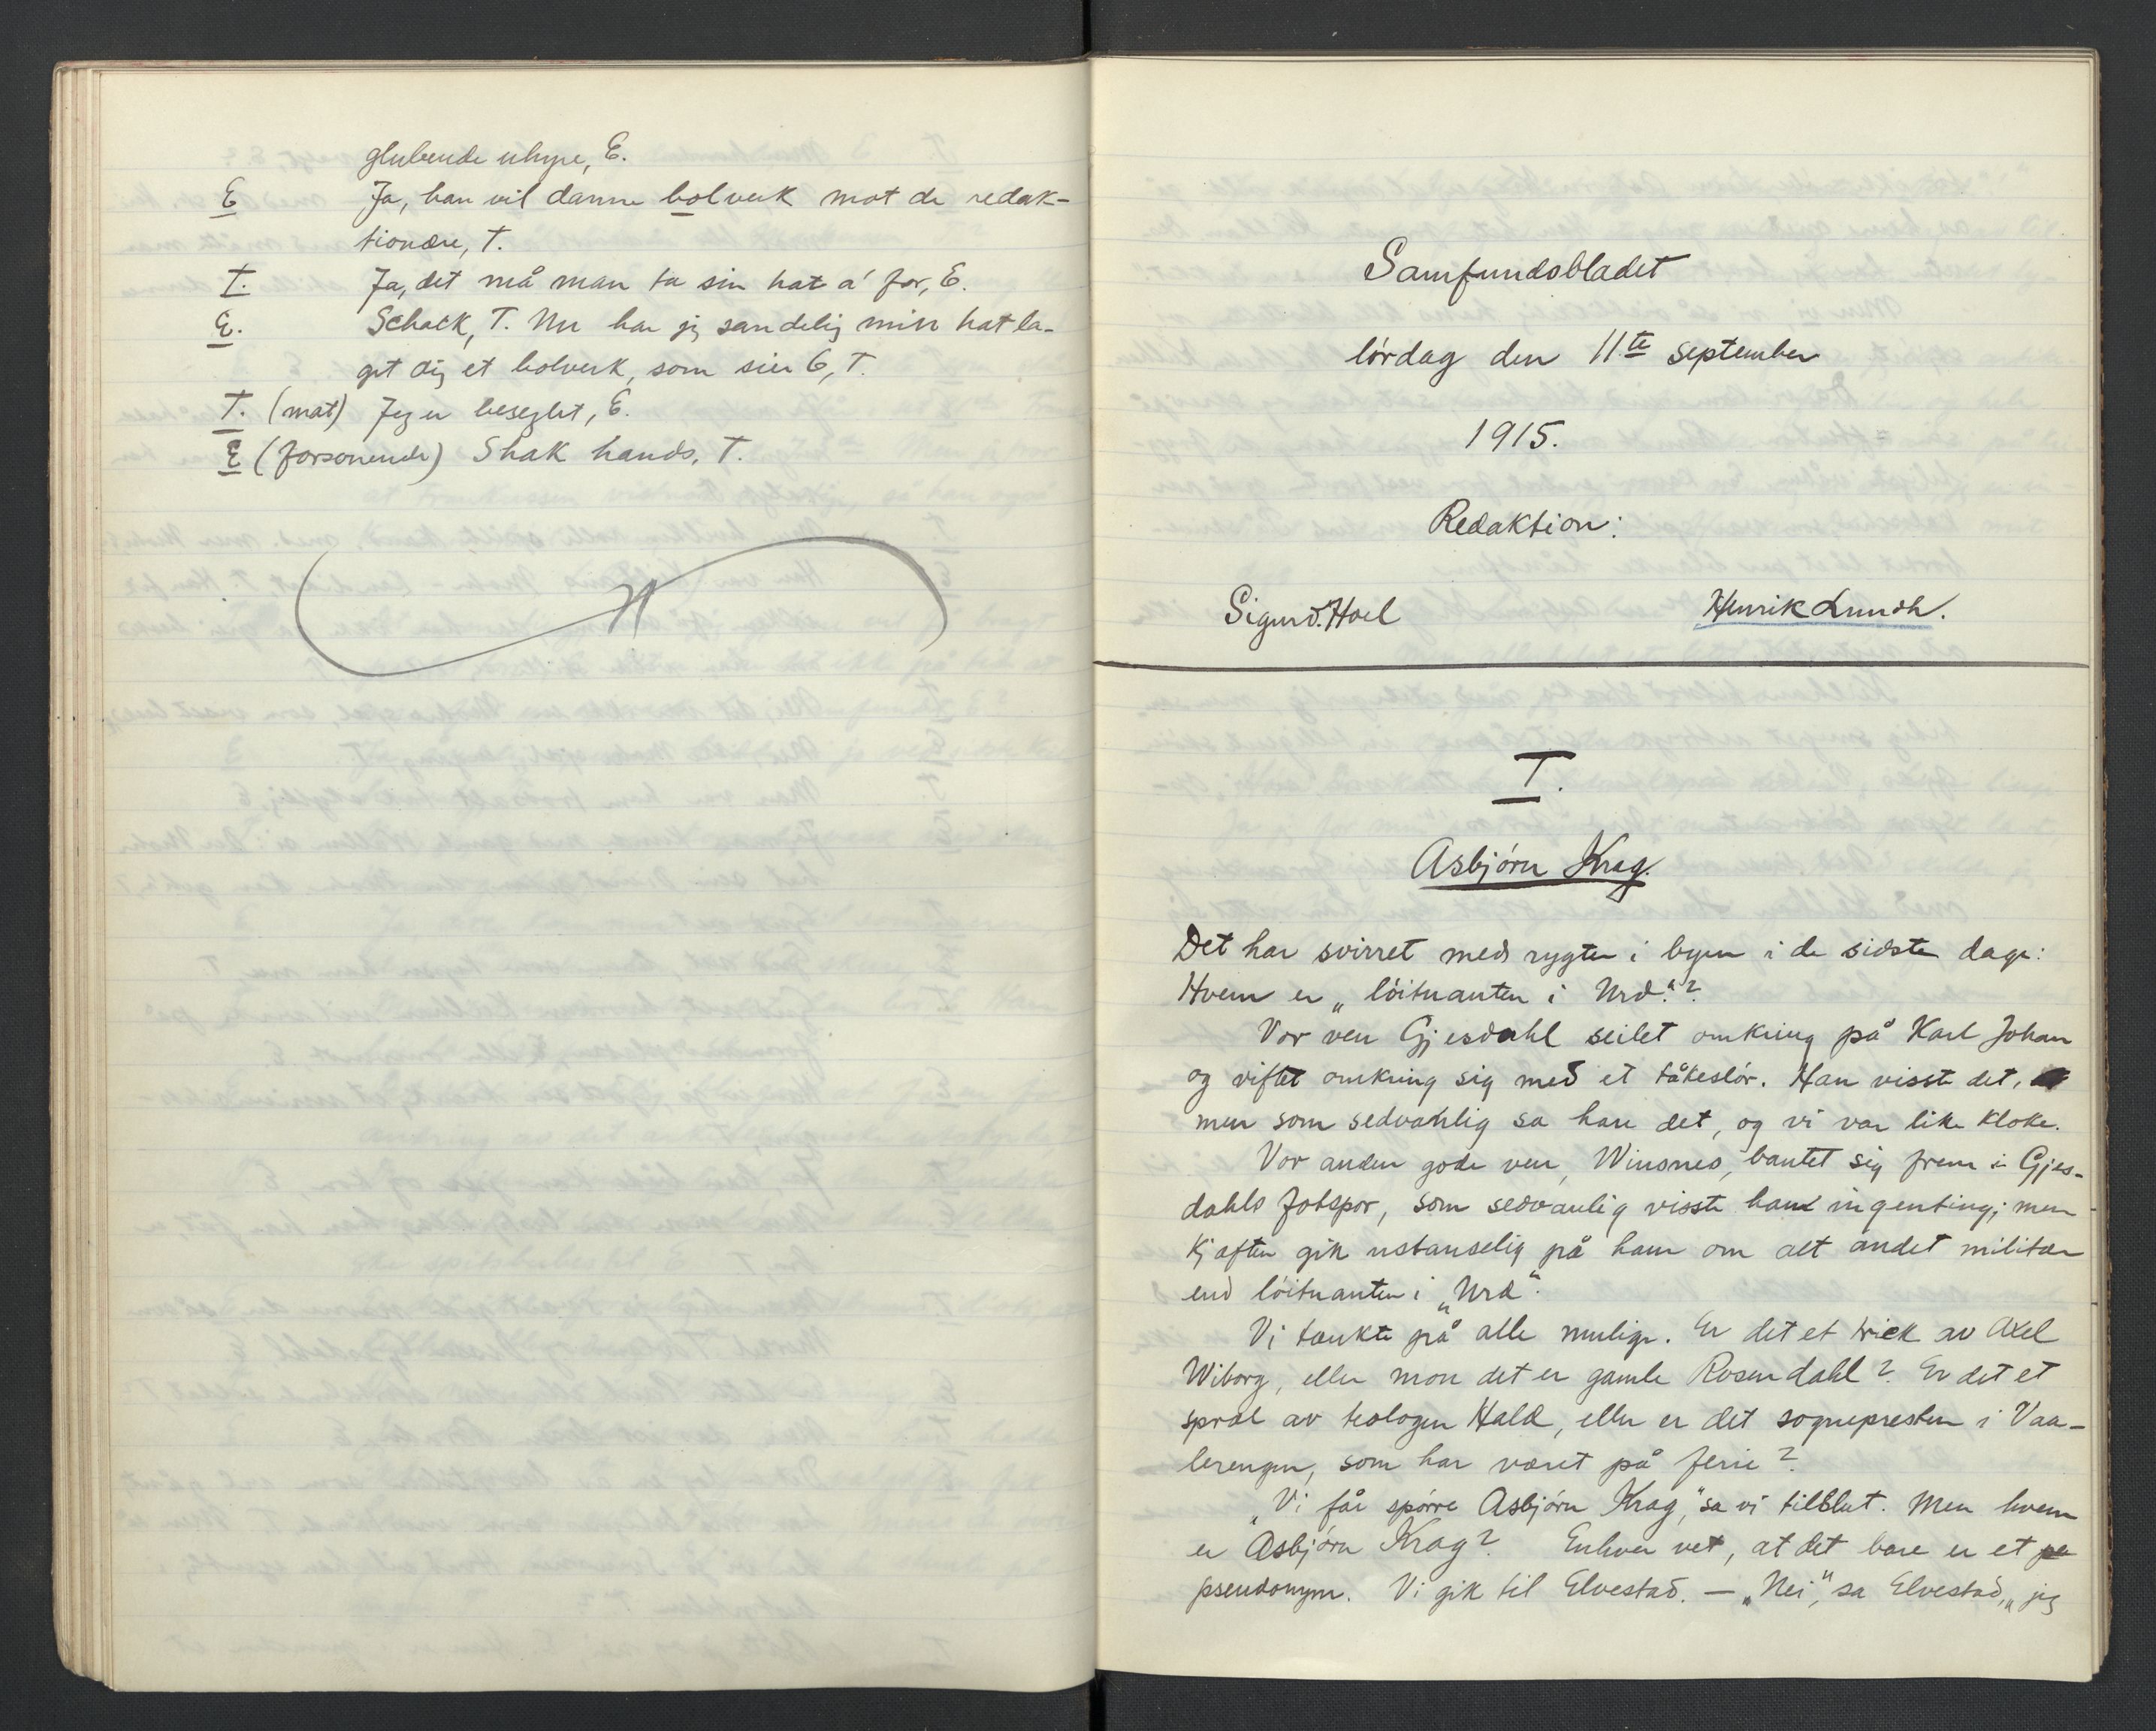 glubende uhyre, E.
E Ja, han vil danne bolverk mot de redak-
tionære, T.
T. Ja, det må man ta sin hat á for, E.
E. Schack, T. Nu har jeg sandelig min hat la-
get dig et bolverk, som sier 6, T.
T. (mat) Jeg er beseglet, E.
E (forsonende) Shak hands, T.
Samfundsbladet
lørdag den 11te september
1915.
Redaktion:
Sigurd Hoel Henrik Lundh.
I.
Asbjørn Krag.
Det har svirret med rygter i byen i de sidste dage:
Hvem er „løitnanten i Urd"?
Vor ven Gjesdahl seilet omkring på Karl Johan
og viftet omkring sig med et tåkeslør. Han visste det,
men som sedvanlig sa han det, og vi var like kloke.
Vor anden gode ven, Winsnes, bautet sig frem i Gjes-
dahls fotspor, som sedvanlig visste han ingenting; men
kjæften gik ustanselig på ham om alt andet militær
end løitnanten i „Urd".
Vi tænkte på alle mulige. Er det et trick av Axel
Wiborg, eller mon det er gamle Rosendahl? Er det et
spræl av teologen Hald, eller er det sognepresten i Vaa-
lerengen, som har været på ferie?
„Vi får spørre Asbjørn Krag," sa vi tilslut. Men hvem
er Asbjørn Krag? Enhver vet, at det bare er et pe
pseudonym. Vi gik til Elvestad. — „Nei," sa Elvestad, „jeg